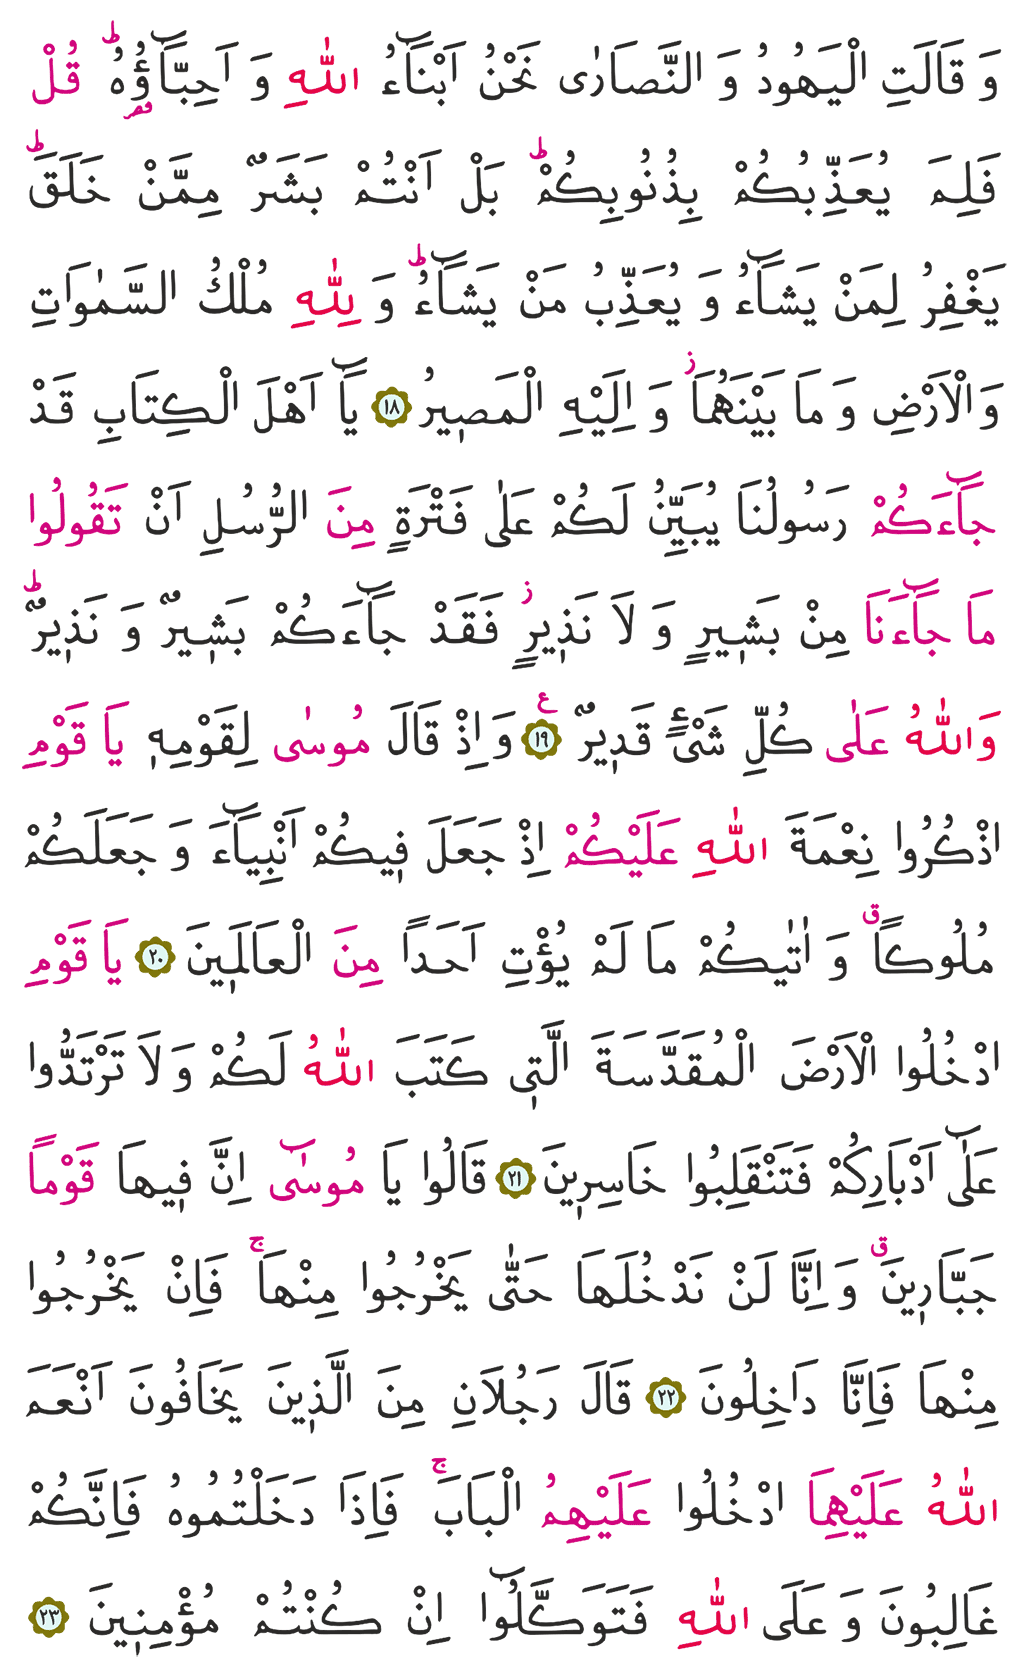 وَ قَالَتِ الْيَهُودُ وَ النَّصَارٰى نَحْنُ اَبْنَٓاءُ اللّٰهِ وَ اَحِبَّٓاؤُ۬هُۜ قُلْ
فَلِمَ يُعَذِّبُكُمْ بِذُنُوبِكُمْۜ بَلْ اَنْتُمْ بَشَرٌ مِمَّنْ خَلَقَۜ
يَغْفِرُ لِمَنْ يَشَٓاءُ وَ يُعَذِّبُ مَنْ يَشَٓاءُۜ وَ لِلّٰهِ مُلْكُ السَّمٰوَاتِ
وَالْاَرْضِ وَ مَا بَيْنَهُمَاۘ وَ اِلَيْهِ الْمَص۪يرُ ﴿١٨﴾ يَٓا اَهْلَ الْكِتَابِ قَدْ
جَٓاءَكُمْ رَسُولُنَا يُبَيِّنُ لَكُمْ عَلٰى فَتْرَةٍ مِنَ الرُّسُلِ اَنْ تَقُولُوا
مَا جَٓاءَنَا مِنْ بَش۪يرٍ وَ لَا نَذ۪يرٍۘ فَقَدْ جَٓاءَكُمْ بَش۪يرٌ وَ نَذ۪يرٌۜ
وَاللّٰهُ عَلٰى كُلِّ شَيْءٍ قَد۪يرٌ۟ ﴿١٩﴾ وَ اِذْ قَالَ مُوسٰى لِقَوْمِه۪ يَا قَوْمِ
اذْكُرُوا نِعْمَةَ اللّٰهِ عَلَيْكُمْ اِذْ جَعَلَ ف۪يكُمْ اَنْبِيَٓاءَ وَ جَعَلَكُمْ
مُلُوكًاۗ وَ اٰتٰيكُمْ مَا لَمْ يُؤْتِ اَحَدًا مِنَ الْعَالَم۪ينَ ﴿٢٠﴾ يَا قَوْمِ
ادْخُلُوا الْاَرْضَ الْمُقَدَّسَةَ الَّت۪ي كَتَبَ اللّٰهُ لَكُمْ وَ لَا تَرْتَدُّوا
عَلٰٓى اَدْبَارِكُمْ فَتَنْقَلِبُوا خَاسِر۪ينَ ﴿٢١﴾ قَالُوا يَا مُوسٰٓى اِنَّ ف۪يهَا قَوْمًا
جَبَّار۪ينَۗ وَ اِنَّا لَنْ نَدْخُلَهَا حَتّٰى يَخْرُجُوا مِنْهَاۚ فَاِنْ يَخْرُجُوا
مِنْهَا فَاِنَّا دَاخِلُونَ ﴿٢٢﴾ قَالَ رَجُلَانِ مِنَ الَّذ۪ينَ يَخَافُونَ اَنْعَمَ
اللّٰهُ عَلَيْهِمَا ادْخُلُوا عَلَيْهِمُ الْبَابَۚ فَاِذَا دَخَلْتُمُوهُ فَاِنَّكُمْ
غَالِبُونَ وَ عَلَى اللّٰهِ فَتَوَكَّلُٓوا اِنْ كُنْتُمْ مُؤْمِن۪ينَ ﴿٢٣﴾